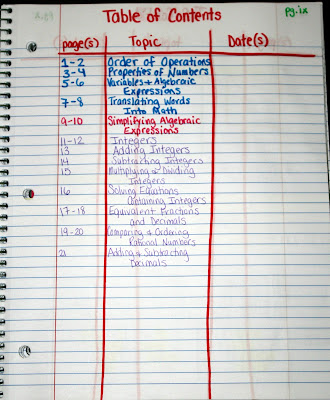 Table of Contents
pg. ix
page(s) Topic Date(s)
1-2 Order of Operations
3-4 Properties of Numbers
5-6 Variables + Algebraic
Expressions
7-8 Translating Words
Into Math
9-10 Simplifying Algebraic
Expressions
11-12 Integers
13 Adding Integers
14 Subtracting Integers
15 Multiplying & Dividing
Integers
16 Solving Equations
Containing Integers
17-18 Equivalent Fractions
and Decimals
19-20 Comparing & Ordering
Rational Numbers
21 Adding & Subtracting
Decimals